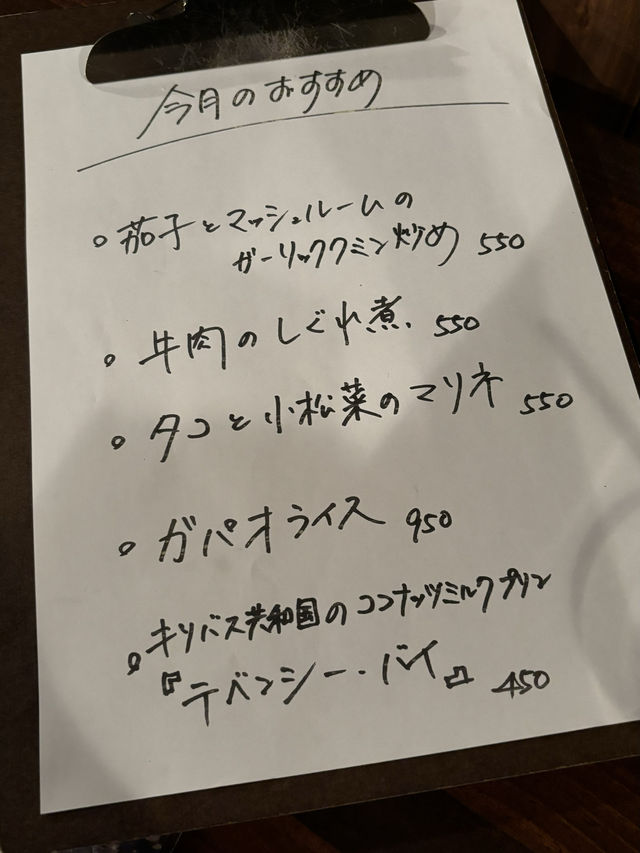 今月のおすすめ
。茄子とマッシュルームの
ガーリッククミン炒め 550
。牛肉のしぐれ煮. 550
。タコと小松菜のマリネ 550
。ガパオライス 950
。キリバス共和国のココナッツミルクプリン
『テバンシー・バイ』 450